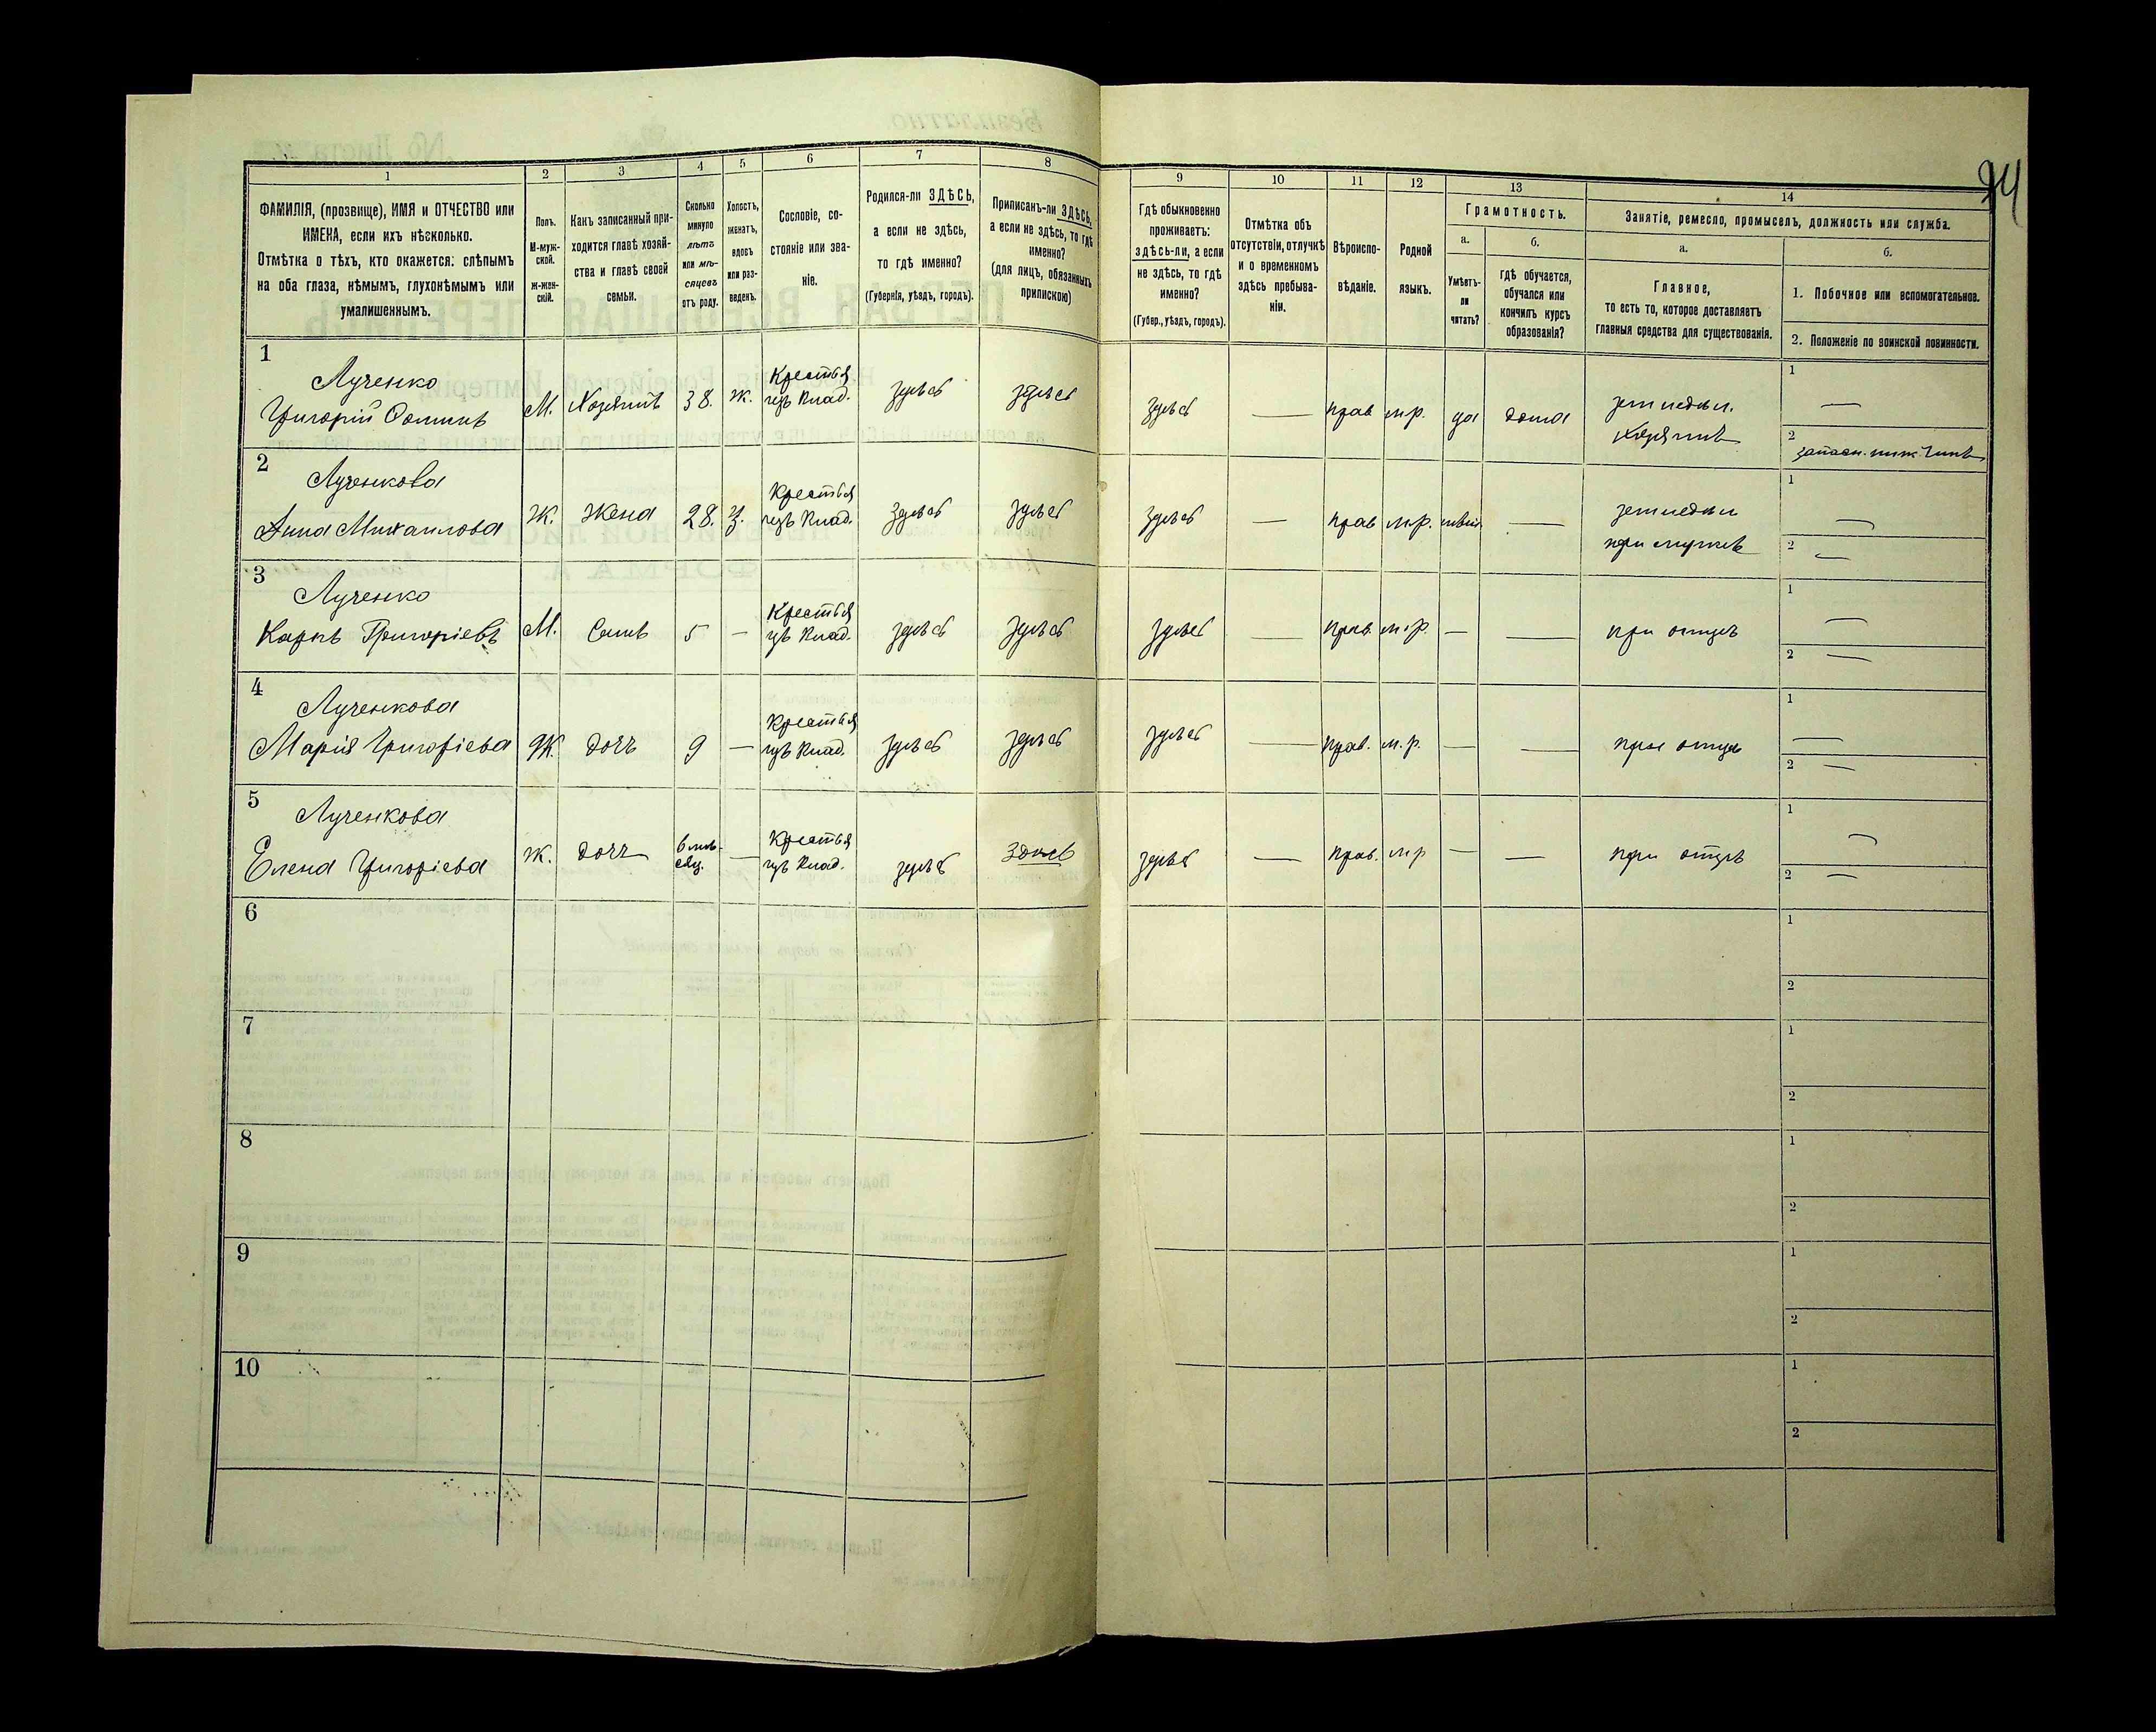 94
1
2
3
4
5
6
7
8
9
10
11
12
13
14
ФАМИЛІЯ, (прозвище), ИМЯ и ОТЧЕСТВО или
ИМЕНА, если ихъ нѣсколько.
Отмѣтка о тѣхъ, кто окажется: слѣпымъ
на оба глаза, нѣмымъ, глухонѣмымъ или
умалишеннымъ.
Полъ.
М-муж-
ской.
Ж-жен-
скій.
Какъ записанный при-
ходится главѣ хозяй-
ства и главѣ своей
семьи.
Сколько
минуло
лѣтъ
или мѣ-
сяцевъ
отъ роду.
Холостъ,
женатъ,
вдовъ
или раз-
веденъ.
Сословіе, со-
стояніе или зва-
ніе.
Родился-ли ЗДѢСЬ,
а если не здѣсь,
то гдѣ именно?
(Губернія, уѣздъ, городъ).
Приписанъ-ли ЗДѢСЬ,
а если не здѣсь, то гдѣ
именно?
(для лицъ, обязанныхъ
припискою)
Гдѣ обыкновенно
проживаетъ:
здѣсь-ли, а если
не здѣсь, то гдѣ
именно?
(Губер., уѣздъ, городъ).
Отмѣтка объ
отсутствіи, отлучкѣ
и о временномъ
здѣсь пребыва-
ніи.
Вѣроиспо-
вѣданіе.
Родной
языкъ.
Грамотность.
а.
Умѣетъ-
ли
читать?
б.
гдѣ обучается,
обучался или
кончилъ курсъ
образованія?
Занятіе, ремесло, промыселъ, должность или служба.
а.
Главное,
то есть то, которое доставляетъ
главныя средства для существованія.
б.
1. Побочное или вспомогательное.
2. Положеніе по воинской повинности.
1
Лученко
Григорій Фоминъ
М.
Хозяинъ
38.
ж.
Крестья
нзъ Влад.
здѣсь
здѣсь
здѣсь
—
прав
м.р.
да
дома
земледѣл.
хозяинъ
1
—
2
запасн. ниж чинъ
2
Лученкова
Анна Михаилова
Ж.
жена
28.
з.
Крестья
Влад.
здѣсь
здѣсь
здѣсь
—
прав
м.р.
—
земледѣл
при мужѣ
1
—
2
—
3
Лученко
Карпъ Григоріевъ
М.
Сынъ
5
—
Крестья
Влад.
здѣсь
здѣсь
здѣсь
—
прав.
м.р.
—
—
при отцѣ
1
—
2
—
4
Лученкова
Марія Григоріева
Ж.
дочь
9
—
Крестья
Влад.
здѣсь
здѣсь
здѣсь
—
прав.
м.р.
—
—
при отцѣ
1
—
2
—
5
Лученкова
Елена Григоріева
Ж.
дочь
6 мѣ-
сяц.
—
Крестья
Влад.
здѣсь
здѣсь
здѣсь
—
прав.
м.р
—
—
при отцѣ
1
—
2
—
6
1
2
7
1
2
8
1
2
9
1
2
10
1
2